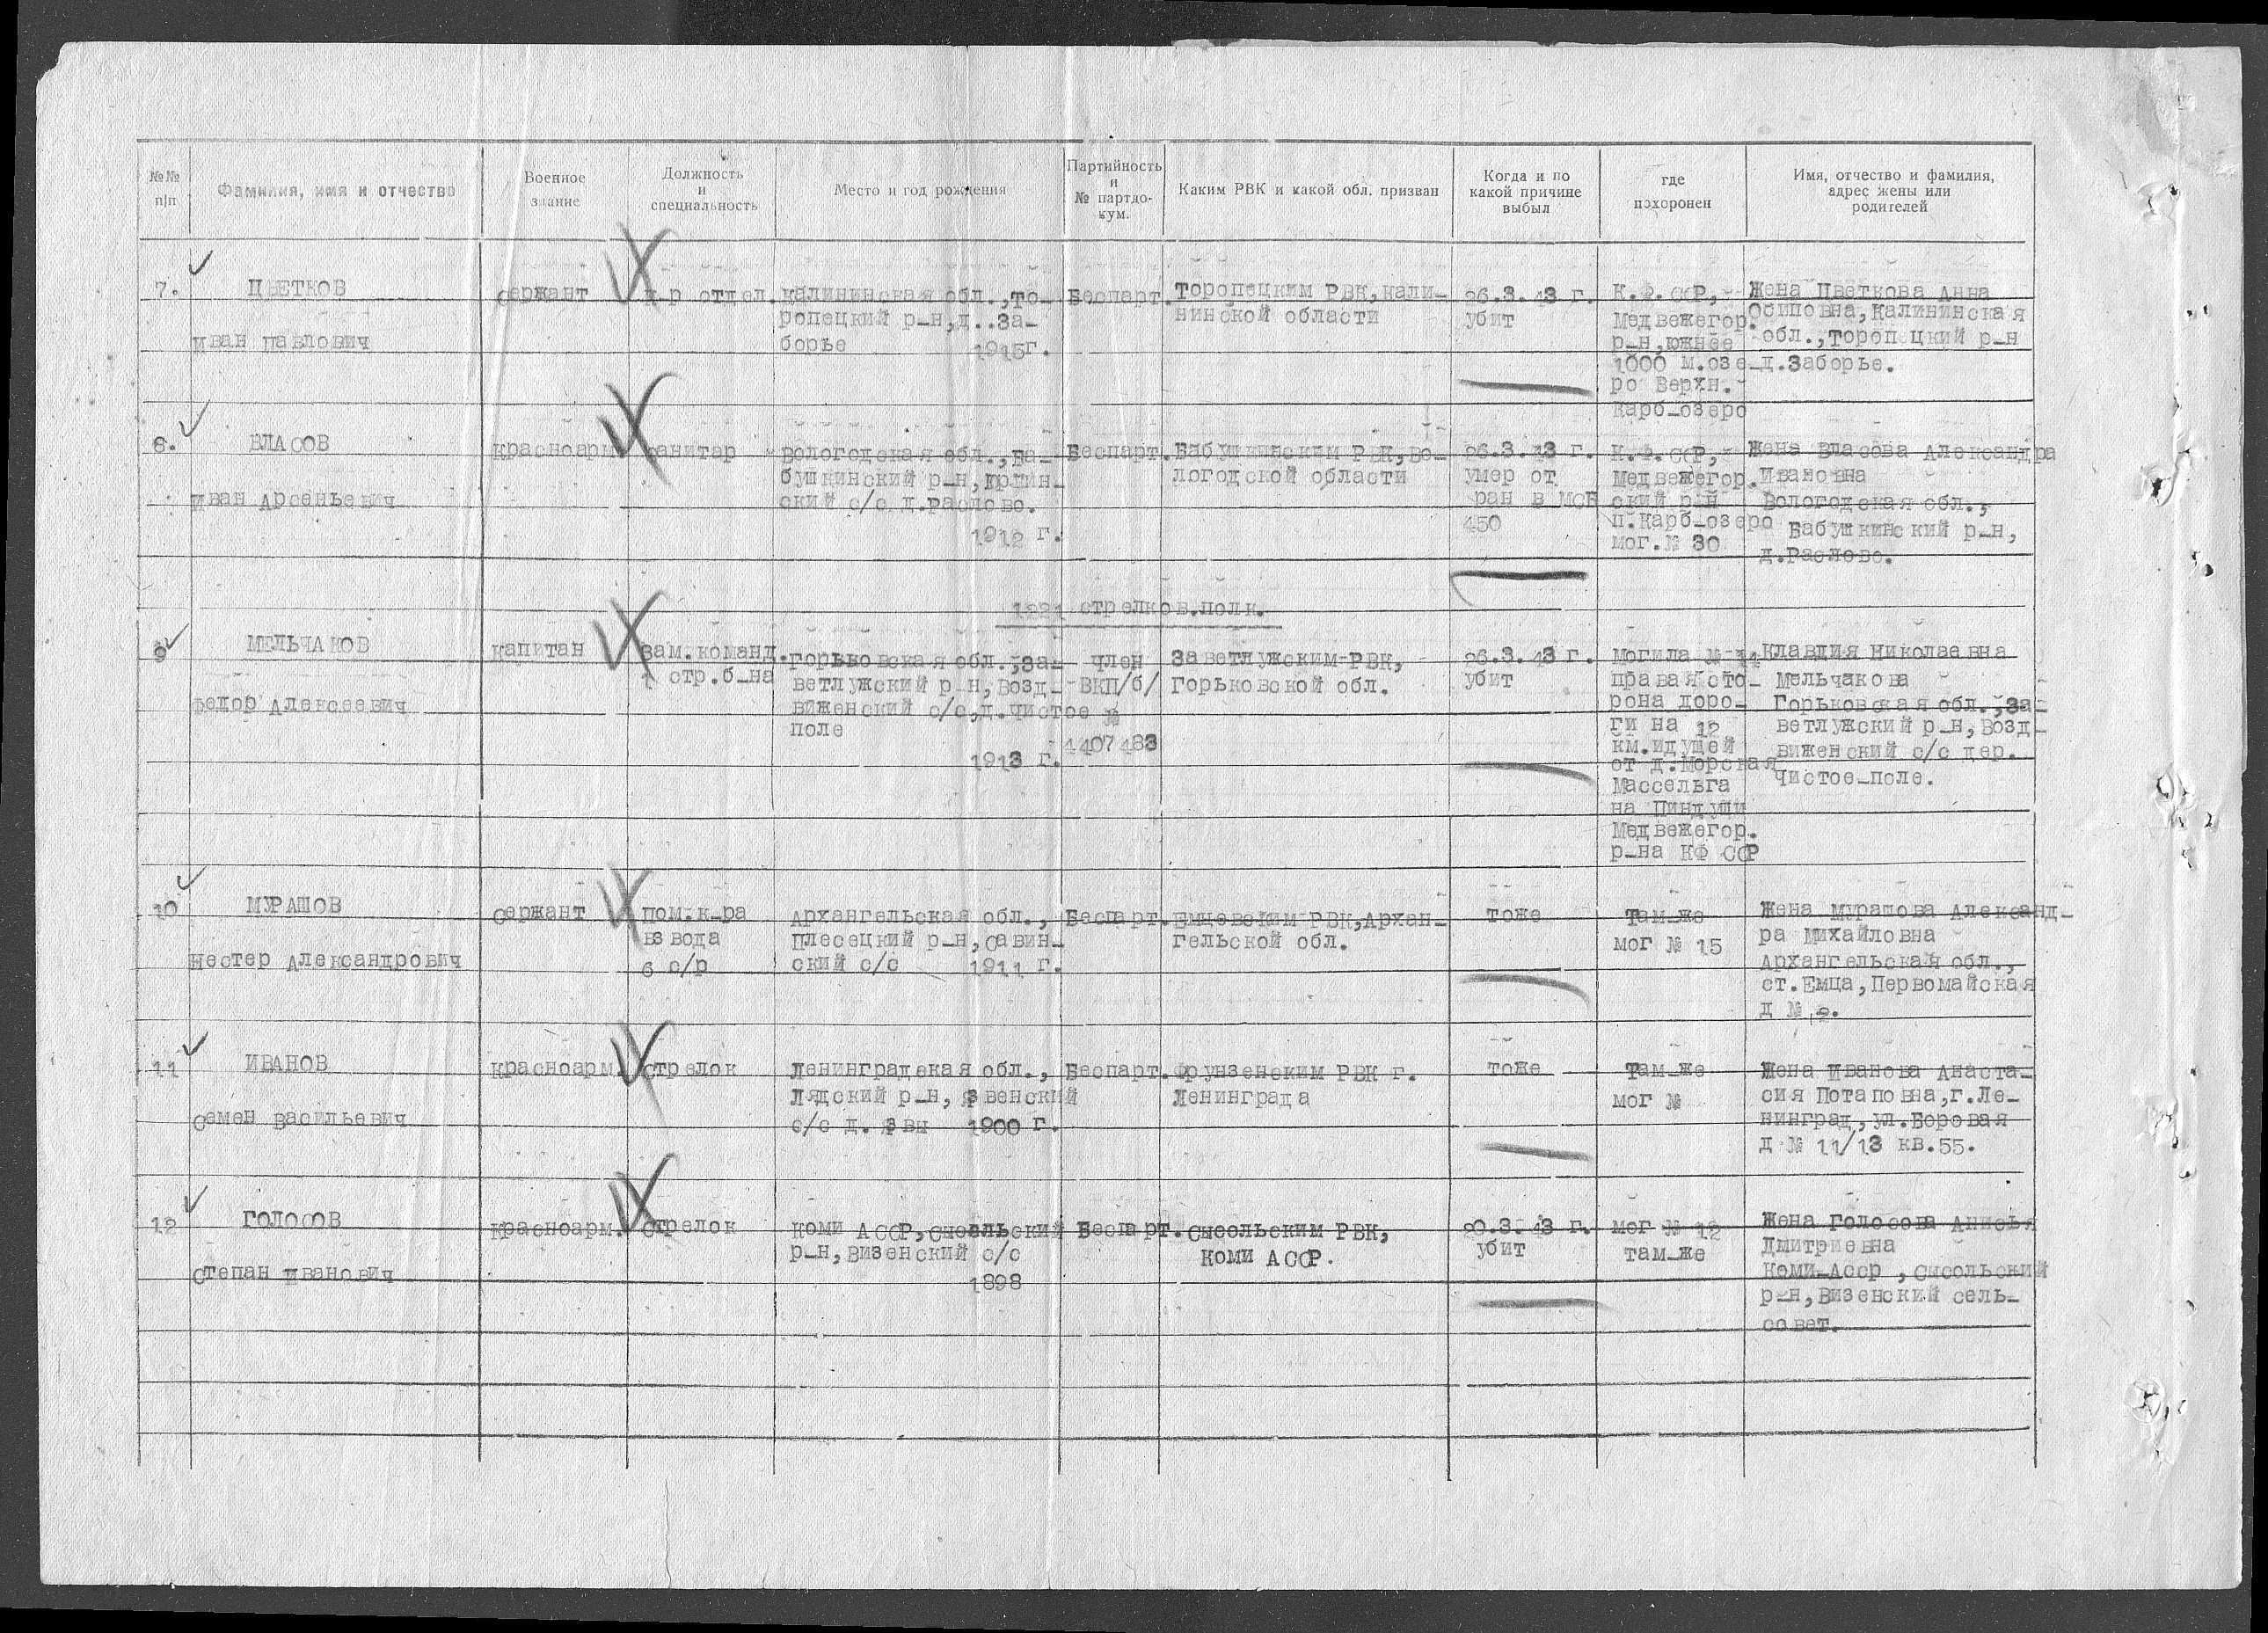 №№ п|п
Фамилия, имя и отчество
Военное звание
Должность и специальность
Место и год рождения
Партийность и № партдокум.
Каким РВК и какой обл. призван
Когда и по какой причине выбыл
где похоронен
Имя, отчество и фамилия, адрес жены или родителей
7.
ЦВЕТКОВ
Иван Павлович
сержант
к-р отдел.
Калининская обл.,То-
ропецкий р-н,д..За-
борье
1915г.
Беспарт.
Торопецким РВК,Кали-
нинской области
26.3.43 г.
убит
К.Ф.ССР,-
Медвежегор.
р-н,южнее
1000 м.озе-
ро Верхн.-
Карб-озеро
Жена Цветкова Анна
Осиповна,Калининская
обл.,Торопецкий р-н
д.Заборье.
8.
ВЛАСОВ
Иван Арсеньевич
красноарм.
санитар
Вологодская обл.,Ба-
бушкинский р-н,
ский с/с д.Раслово.
1912 г.
Беспарт.
Бабушкинским РВК,Во-
логодской области
26.3.43 г.
умер от
ран в МСБ
450
К.Ф.ССР,-
Медвежегор.
ский р-й
п.Карб-озеро
мог.№ 30
Жена Власова Александра
Ивановна
Вологодская обл.,
Бабушкинский р-н,
д.Раслово.
1221 стрелков.полк.
9
МЕЛЬЧАКОВ
Федор Алексеевич
капитан
Зам.команд.
1 стр.б-на
Горьковская обл.,За-
ветлужский р-н,Возд-
виженский с/с,д.Чистое
поле
1913 г.
член
ВКП/б/
№
4407483
Заветлужским-РВК,
Горьковской обл.
26.3.43 г.
убит
Могила № 14
правая сто-
рона доро-
ги на 12
км.идущей
от д.Морская
Массельга
на Пиндуши
Медвежегор.
р-на КФ ССР
Клавдия Николаевна
Мельчакова
Горьковская обл.,За-
ветлужский р-н,Возд-
виженский с/с дер.
Чистое-поле.
10
МУРАШОВ
Нестер Александрович
сержант
Пом.к-ра
взвода
6 с/р
Архангельская обл.,
Плесецкий р-н,Савин-
ский с/с
1911 г.
Беспарт.
Емцевским РВК,Архан-
гельской обл.
тоже
Там-же
мог № 15
Жена Мурашова Александ-
ра Михайловна
Архангельская обл.,
ст.Емца,Первомайская
д № 9.
11
ИВАНОВ
Семен Васильевич
красноарм.
стрелок
Ленинградская обл.,
Лядский р-н, Язвенский
с/с д.
1900 г.
Беспарт.
Фрунзенским РВК г.
Ленинграда
тоже
Там-же
мог №
Жена Иванова Анаста-
сия Потаповна,г.Ле-
нинград,ул.Боровая
д № 11/13 кв.55.
12
ГОЛОСОВ
Степан Иванович
красноарм.
стрелок
Коми АССР,Сысольский
р-н,Визенский с/с
1898
Беспарт.
Сысольским РВК,
Коми АССР.
20.3.43 г.
убит
мог № 12
там-же
Жена Голосова Анисья
Дмитриевна
Коми-Асср ,Сысольский
р-н,Визенский сель-
совет.